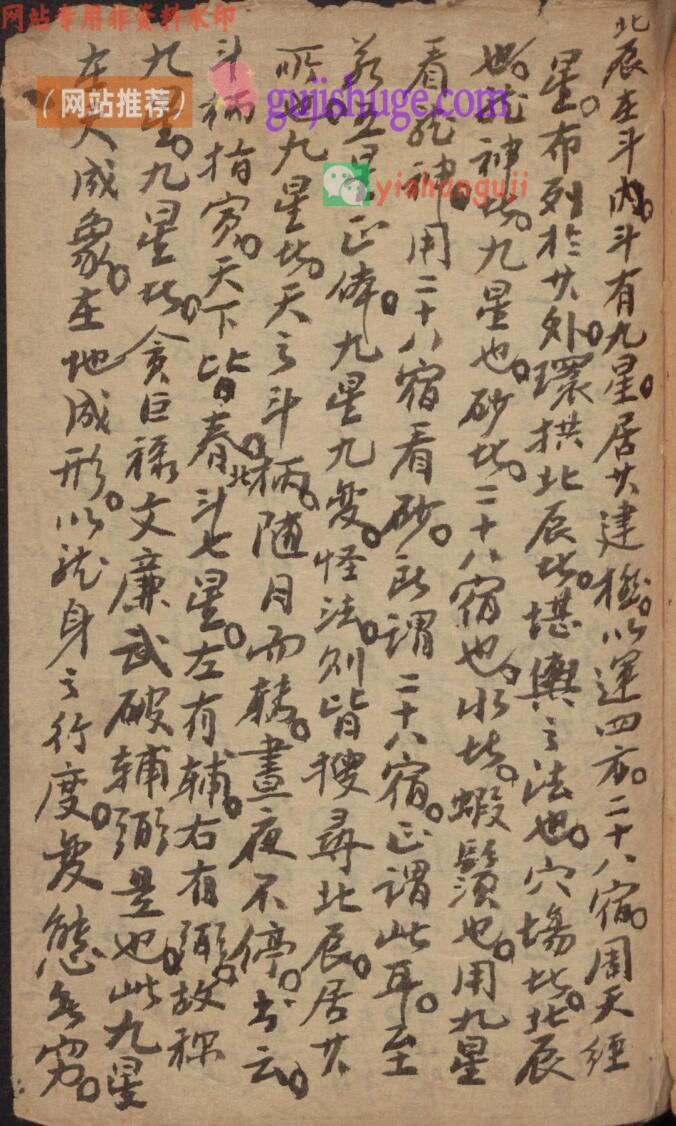 北辰在斗内。斗有九星。居其建極。以運四方。二十八宿。周天經
星。布列於其外。環拱北辰者。堪輿之法也。穴場者。北辰
也。龍神者。九星也。砂者。二十八宿也。水者。蝦鬚也。用九星
看龍神。用二十八宿看砂。所謂二十八宿。正謂此耳。至
若五星正体。九星九变。怪法。则皆搜尋北辰。居其
所也。九星者。天之斗柄。随月而轉。晝夜不停。书云。
斗柄指寅。天下皆春。北斗七星。左有輔。右有弼。故称
九星。九星者。贪巨禄文廉武破輔弼是也。此九星
在天成象。在地成形。以龙身之行度。变態无窮。
网站专用非资料水印
(网站推荐)
gujishuge.com
yishanguji